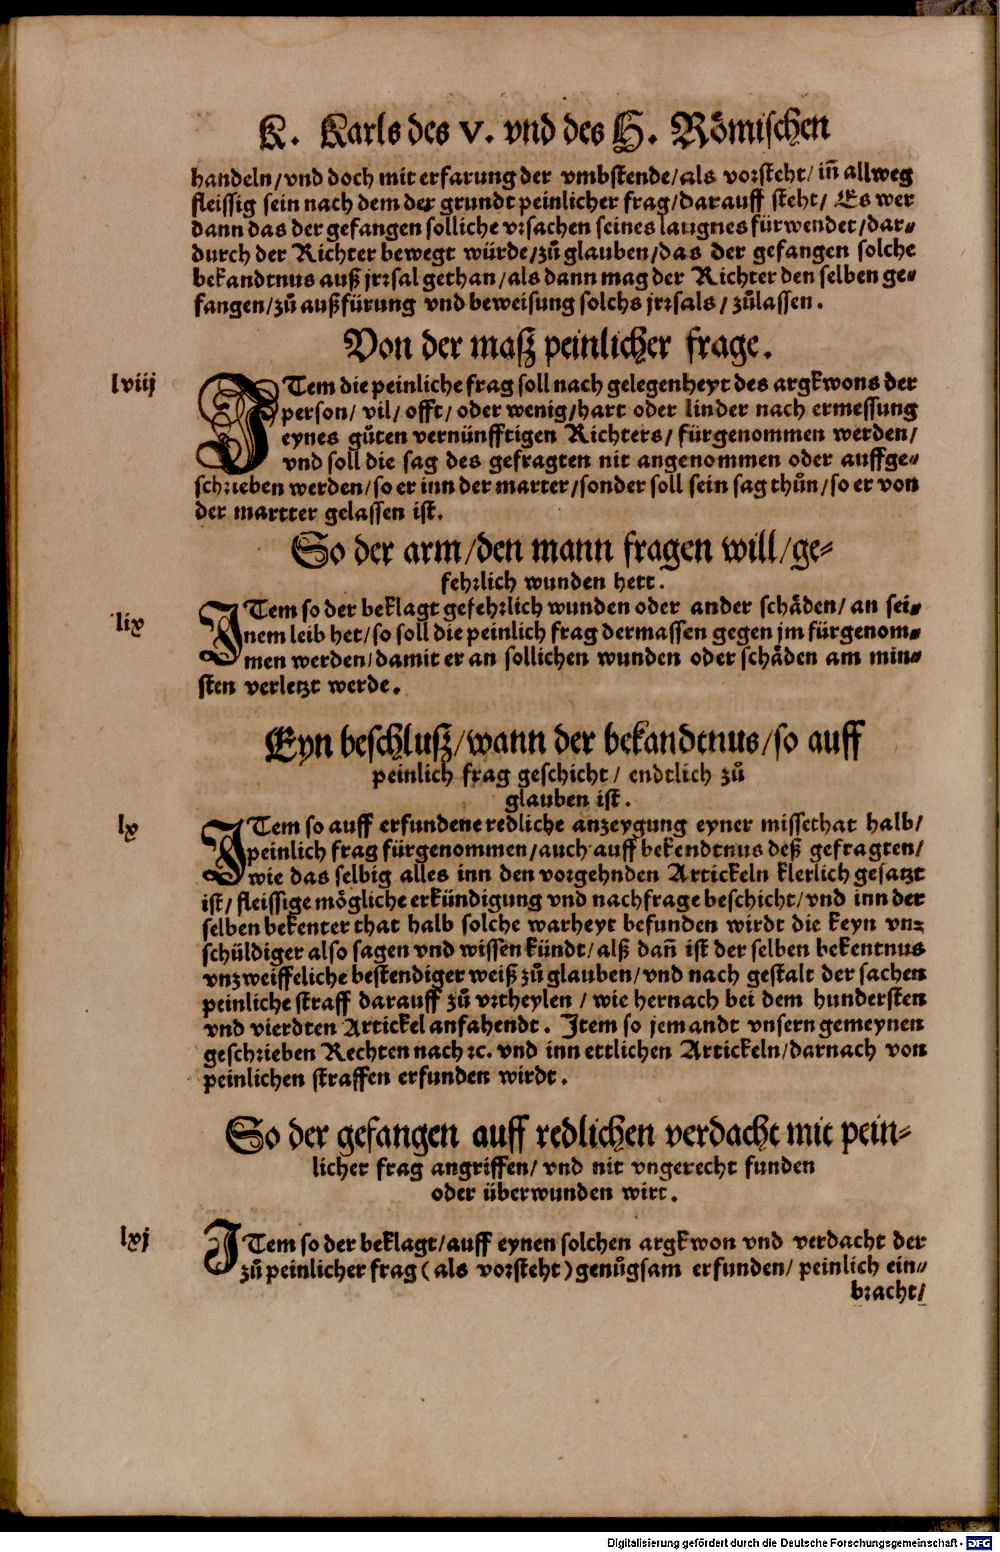 K. Karls des v. vnd des H. Römischen
handeln/vnd doch mit erfarung der vmbstende/als vorsteht/inn̄ allweg
fleissig sein nach dem der grundt peinlicher frag/darauff steht/ Es wer
dann das der gefangen solliche vrsachen seines laugnes fürwendet/dar⸗
durch der Richter bewegt würde/zů glauben/das der gefangen solche
bekandtnus auß jrrsal gethan/als dann mag der Richter den selben ge⸗
fangen/zů außfürung vnd beweisung solchs jrrsals/zůlassen.
Von der masz peinlicher frage.
lviij
ITem die peinliche frag soll nach gelegenheyt des argkwons der
person/ vil/ offt/ oder wenig/hart oder linder nach ermessung
eynes gůten vernünfftigen Richters/ fürgenommen werden/
vnd soll die sag des gefragten nit angenommen oder auffge⸗
schrieben werden/so er inn der marter/sonder soll sein sag thůn/so er von
der martter gelassen ist.
So der arm/den mann fragen will/ge⸗
fehrlich wunden hett.
lix
ITem so der beklagt gefehrlich wunden oder ander schäden/ an sei⸗
nem leib het/so soll die peinlich frag dermassen gegen jm fürgenom⸗
men werden/damit er an sollichen wunden oder schäden am min⸗
sten verletzt werde.
Eyn beschlusz/wann der bekandtnus/so auff
peinlich frag geschicht/ endtlich zů
glauben ist.
lx
ITem so auff erfundene redliche anzeygung eyner missethat halb/
peinlich frag fürgenommen/auch auff bekendtnus deß gefragten/
wie das selbig alles inn den vorgehnden Artickeln klerlich gesatzt
ist/ fleissige mögliche erkündigung vnd nachfrage beschicht/vnd inn der
selben bekenter that halb solche warheyt befunden wirdt die keyn vn⸗
schüldiger also sagen vnd wissen kündt/alß dañ ist der selben bekentnus
vnzweiffeliche bestendiger weiß zů glauben/vnd nach gestalt der sachen
peinliche straff darauff zů vrtheylen / wie hernach bei dem hundersten
vnd vierdten Artickel anfahendt. Item so jemandt vnsern gemeynen
geschrieben Rechten nach ꝛc. vnd inn ettlichen Artickeln/darnach von
peinlichen straffen erfunden wirdt.
So der gefangen auff redlichen verdacht mit pein⸗
licher frag angriffen/ vnd nit vngerecht funden
oder überwunden wirt.
lxj
ITem so der beklagt/auff eynen solchen argkwon vnd verdacht der
zů peinlicher frag (als vorsteht) genůgsam erfunden/ peinlich ein⸗
bracht/
Digitalisierung gefördert durch die Deutsche Forschungsgemeinschaft - DFG